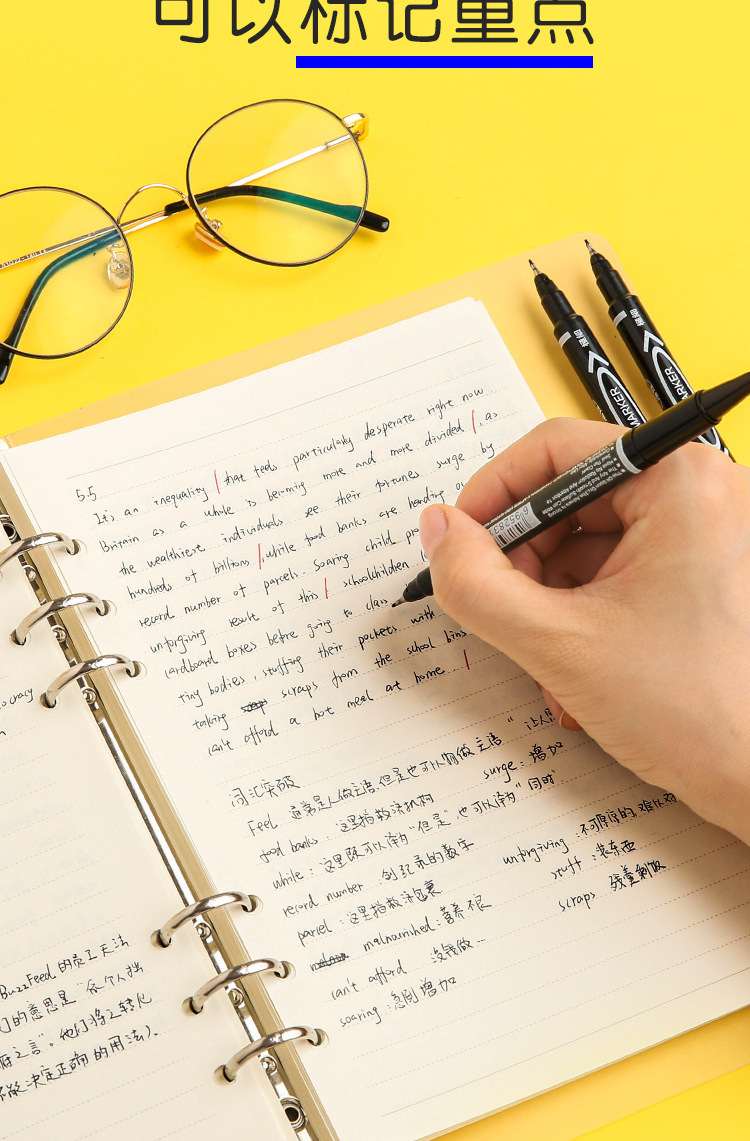 可以标记重点
5.5
It's an inequality that feels particularly desperate right now
Britain as a whole is becoming more and more divided, as
the wealthiest individuals see their fortunes surge by
hundreds of billions, while food banks are handing
record number of parcels. Soaring child
unforgiving result of this schoolchildren
cardboard boxes before going to class
tiny bodies, stuffing their pockets with
taking scraps from the school bins
can't afford a hot meal at home
词汇突破
Feel 通常是人做主语,但是也可以物做主语"
food banks: 这里指救济机构 surge: 增加
while: 这里既可以译为"但是",也可以译为"同时"
record number 创纪录的数字 unforgiving 不可原谅的,难以
parcel: 这里指救济包裹 stuff: 装东西
malnourished: 营养不良 scraps 残羹剩饭
can't afford 没钱做…
soaring: 急剧增加
ocracy
BuzzFeed 的员工无法
们的意思是"每个人
之言"。他们将之转化
决定正确的用法).
MARKER
MARKER